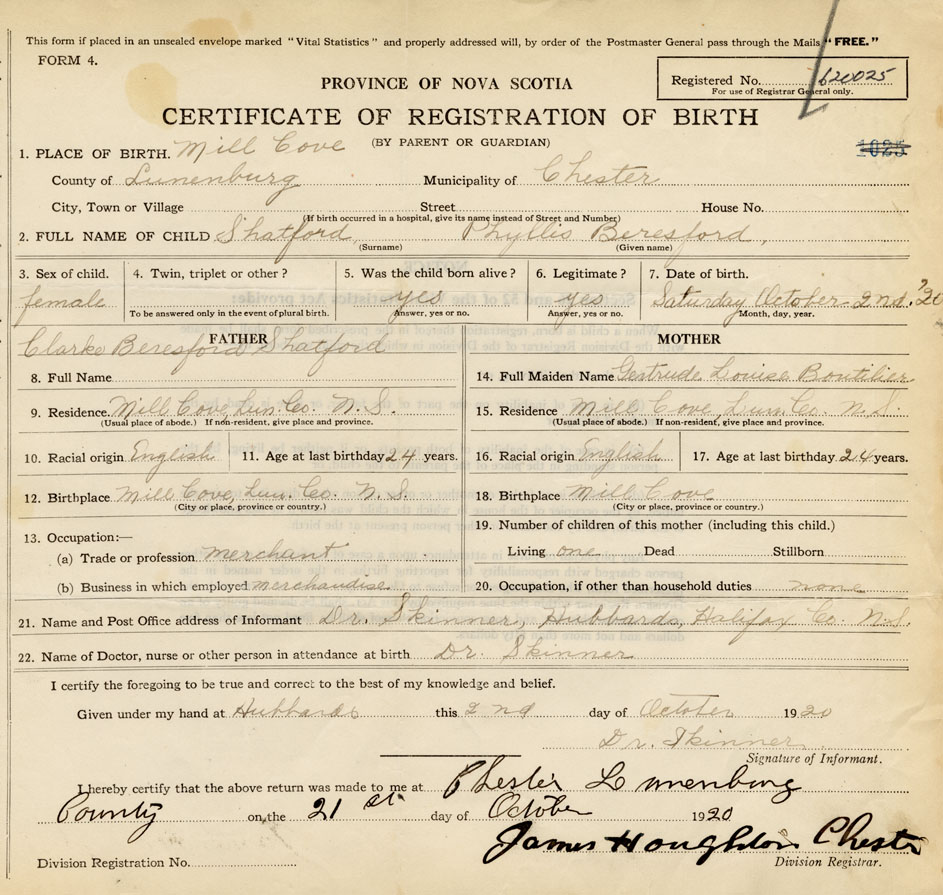 This form if placed in an unsealed envelope marked "Vital Statistics" and properly addressed will, by order of the Postmaster General pass through the Mails "FREE."
FORM 4.
PROVINCE OF NOVA SCOTIA
Registered No. 620025
For use of Registrar General only.
CERTIFICATE OF REGISTRATION OF BIRTH
(BY PARENT OR GUARDIAN)
1025
1. PLACE OF BIRTH. Mill Cove
County of Lunenburg Municipality of Chester
City, Town or Village Street House No.
(If birth occurred in a hospital, give its name instead of Street and Number)
2. FULL NAME OF CHILD Shatford, Phyllis Beresford,
(Surname) (Given name)
3. Sex of child. 4. Twin, triplet or other? 5. Was the child born alive? 6. Legitimate? 7. Date of birth.
female yes yes Saturday October 2nd, '20
To be answered only in the event of plural birth. Answer, yes or no. Answer, yes or no. Month, day, year.
FATHER MOTHER
Clarke Beresford Shatford
8. Full Name 14. Full Maiden Name Gertrude Louise Boutilier
9. Residence. Mill Cove, Lun. Co. N. S. 15. Residence Mill Cove, Lun. Co. N. S.
(Usual place of abode.) If non-resident, give place and province. (Usual place of abode.) If non-resident, give place and province.
10. Racial origin English 11. Age at last birthday 24 years. 16. Racial origin English 17. Age at last birthday 24 years.
12. Birthplace Mill Cove, Lun. Co. N. S. 18. Birthplace Mill Cove
(City or place, province or country.) (City or place, province or country.)
13. Occupation:— 19. Number of children of this mother (including this child.)
(a) Trade or profession merchant Living one Dead Stillborn
(b) Business in which employed merchandise 20. Occupation, if other than household duties none
21. Name and Post Office address of Informant Dr. Skinner, Hubbards, Halifax Co. N.S.
22. Name of Doctor, nurse or other person in attendance at birth Dr. Skinner
I certify the foregoing to be true and correct to the best of my knowledge and belief.
Given under my hand at Hubbards this 2nd day of October 1920
Dr. Skinner
Signature of Informant.
I hereby certify that the above return was made to me at Chester Lunenburg
County on the 21st day of October 1920
James Houghton Chester
Division Registration No. Division Registrar.